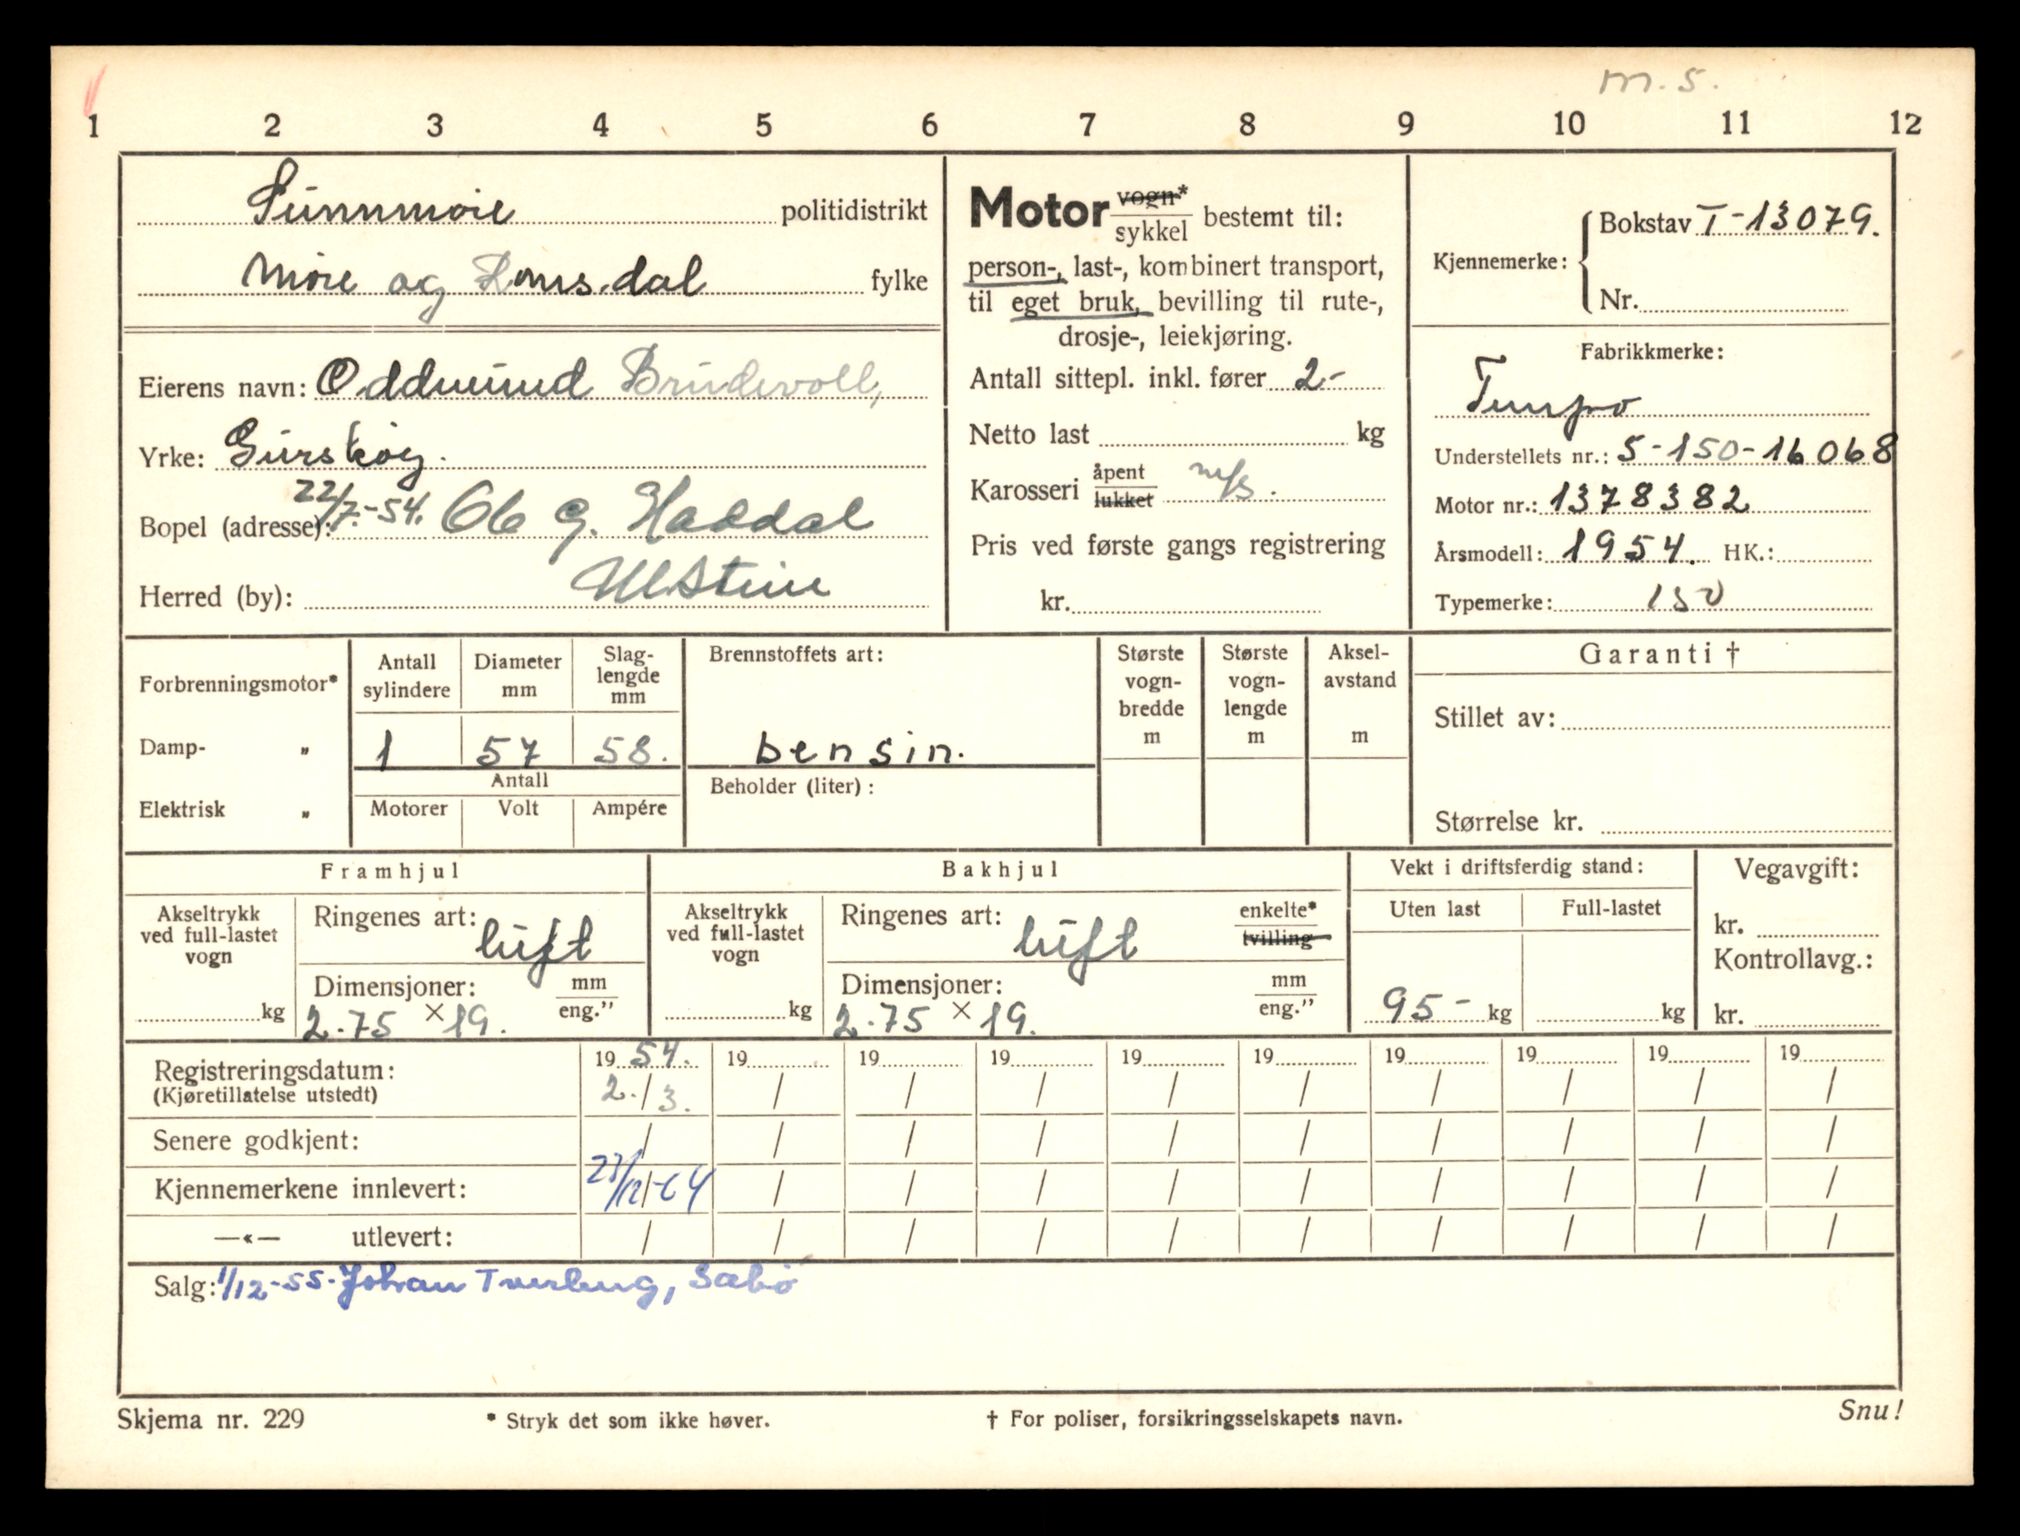 m. s.
1 2 3 4 5 6 7 8 9 10 11 12
Sunnmøre politidistrikt
Møre og Romsdal fylke
Eierens navn: Oddmund Brudevoll,
Yrke: Gurskøy.
22/7.-54. Ole G. Haddal
Bopel (adresse):
Ulstein
Herred (by):
Motor vogn* sykkel bestemt til:
person-, last-, kombinert transport,
til eget bruk, bevilling til rute-,
drosje-, leiekjøring.
Antall sittepl. inkl. fører 2-
Netto last kg
Karosseri åpent lukket
Pris ved første gangs registrering
kr.
Kjennemerke: Bokstav T-13079.
Nr.
Fabrikkmerke:
Tempo
Understellets nr.: S-150-16068
Motor nr.: 1378382
Årsmodell: 1954. HK.:
Typemerke: 150
Forbrenningsmotor*
Damp- „
Elektrisk „
Antall sylindere
Diameter mm
Slaglengde mm
1 57 58.
Antall
Motorer Volt Ampére
Brennstoffets art:
bensin.
Beholder (liter):
Største vogn-bredde m
Største vogn-lengde m
Aksel-avstand m
Garanti †
Stillet av:
Størrelse kr.
Framhjul
Akseltrykk ved full-lastet vogn
kg
Ringenes art: luft
Dimensjoner: mm eng.”
2.75 × 19.
Bakhjul
Akseltrykk ved full-lastet vogn
kg
Ringenes art: luft enkelte* tvilling
Dimensjoner: mm eng.”
2.75 × 19.
Vekt i driftsferdig stand:
Uten last Full-lastet
95- kg kg
Vegavgift:
kr.
Kontrollavg.:
kr.
Registreringsdatum: 19 54. 19 19 19 19 19 19 19 19 19
(Kjøretillatelse utstedt) 2./3. / / / / / / / / /
Senere godkjent: / / / / / / / / / /
Kjennemerkene innlevert: 23/12-64 / / / / / / / / /
—«— utlevert: / / / / / / / / / /
Salg: 1/12-55. Johan Tverberg, Sæbø
Skjema nr. 229 * Stryk det som ikke høver. † For poliser, forsikringsselskapets navn. Snu!